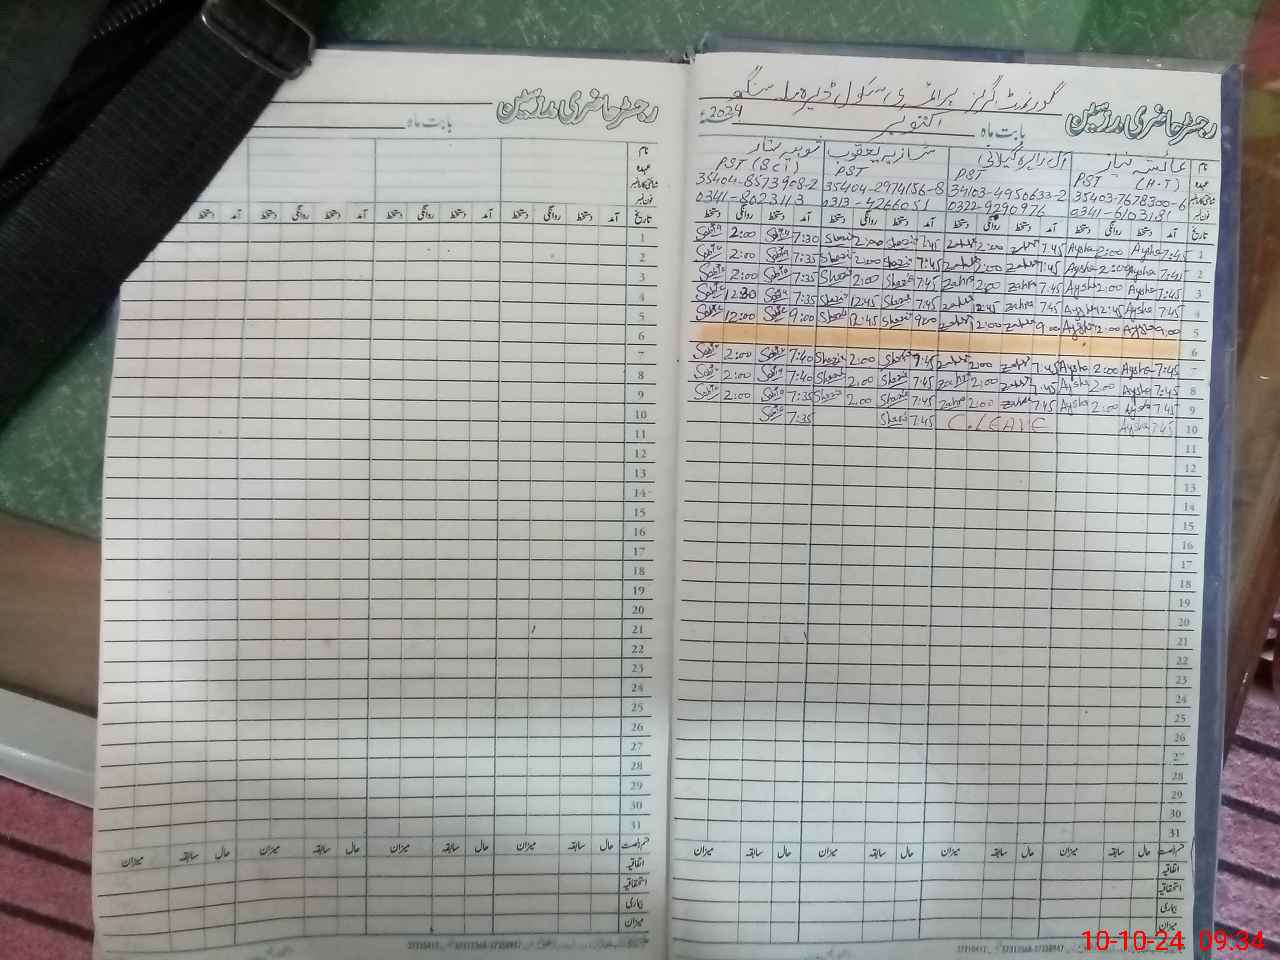 رجسٹر حاضری مدرسین
بابت ماہ
نام
عہدہ
تاریخ آمد دستخط روانگی دستخط آمد دستخط روانگی دستخط آمد دستخط روانگی دستخط آمد دستخط
1
2
3
4
5
6
7
8
9
10
11
12
13
14
15
16
17
18
19
20
21
22
23
24
25
26
27
28
29
30
31
حال سابقہ میزان حال سابقہ میزان حال سابقہ میزان حال سابقہ میزان
اتفاقیہ
استحقاقیہ
بیماری
میزان
گورنمنٹ گرلز پرائمری سکول ڈیرہ
رجسٹر حاضری مدرسین بابت ماہ اکتوبر 2024
نام عائشہ نیاز شازیہ یعقوب ثوبیہ ستار
عہدہ PST (H.T) PST PST PST (Sci)
35403-7678300-6 34103-4950633-2 35404-2974156-8 35404-8573908-2
0341-6103181 0322-9290976 0313-4266051 0341-8023113
تاریخ آمد دستخط روانگی دستخط آمد دستخط روانگی دستخط آمد دستخط روانگی دستخط آمد دستخط روانگی دستخط
1 7:45 Aysha 2:00 Aysha 7:45 Zahra 2:00 Zahra 7:45 Shazia 2:00 Shazia 7:30 2:00
2 7:45 Aysha 2:00 Aysha 7:45 Zahra 2:00 Zahra 7:45 Shazia 2:00 Shazia 7:35 2:00
3 7:45 Aysha 2:00 Aysha 7:45 Zahra 2:00 Zahra 7:45 Shazia 2:00 Shazia 7:35 2:00
4 7:45 Aysha 12:45 Aysha 7:45 Zahra 12:45 Zahra 7:45 Shazia 12:45 Shazia 7:35 12:30
5 9:00 Aysha 12:00 Aysha 9:00 Zahra 12:00 Zahra 9:00 Shazia 12:45 Shazia 9:00 12:00
6
7 7:45 Aysha 2:00 Aysha 7:45 Zahra 2:00 Zahra 7:45 Shazia 2:00 Shazia 7:40 2:00
8 7:45 Aysha 2:00 Aysha 7:45 Zahra 2:00 Zahra 7:45 Shazia 2:00 Shazia 7:40 2:00
9 7:45 Aysha 2:00 Aysha 7:45 Zahra 2:00 Zahra 7:45 Shazia 2:00 Shazia 7:35 2:00
10 7:45 Aysha C.LEAVE 7:45 Shazia 7:35
11
12
13
14
15
16
17
18
19
20
21
22
23
24
25
26
27
28
29
30
31
حال سابقہ میزان حال سابقہ میزان حال سابقہ میزان حال سابقہ میزان
اتفاقیہ
استحقاقیہ
بیماری
میزان
10-10-24 09:34